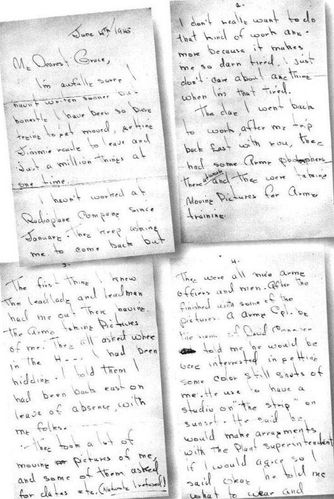 June 4th, 1945
My Dearest Grace,
I'm awfully sorry I
haven't written sooner but
honestly I have been so busy
trying to get moved, getting
Jimmie ready to leave and
just a million things at
one time.
I haven't worked at
Radioplane Company since
January. They keep asking
me to come back but
I don't really want to do
that kind of work any
more because it makes
me so darn tired. I just
don't care about anything
when I'm that tired.
The day I went back
to work after my trip
back East with you, they
had some Army photographers
there and they were taking
Moving Pictures for Army
training.
3.
The first thing I knew
the leadlady and leadmen
had me out there having
the Army taking pictures
of me. They all asked where
in the H--- I had been
hiding. I told them I
had been back east on
leave of absense, with
my folks.
They took a lot of
moving pictures of me,
and some of them asked
for dates etc. (Naturally I refused)
4.
They were all nice army
officers and men. After they
finished with some of the
pictures, a army Cpl. by
the name of David Conover
told me he would be
interested in getting
some color still shots of
me. He use to have a
studio on "the strip" on
Sunset. He said he
would make arrangements
with the Plant superintendent
if I would agree so I
said okay. He told me
what to wear and